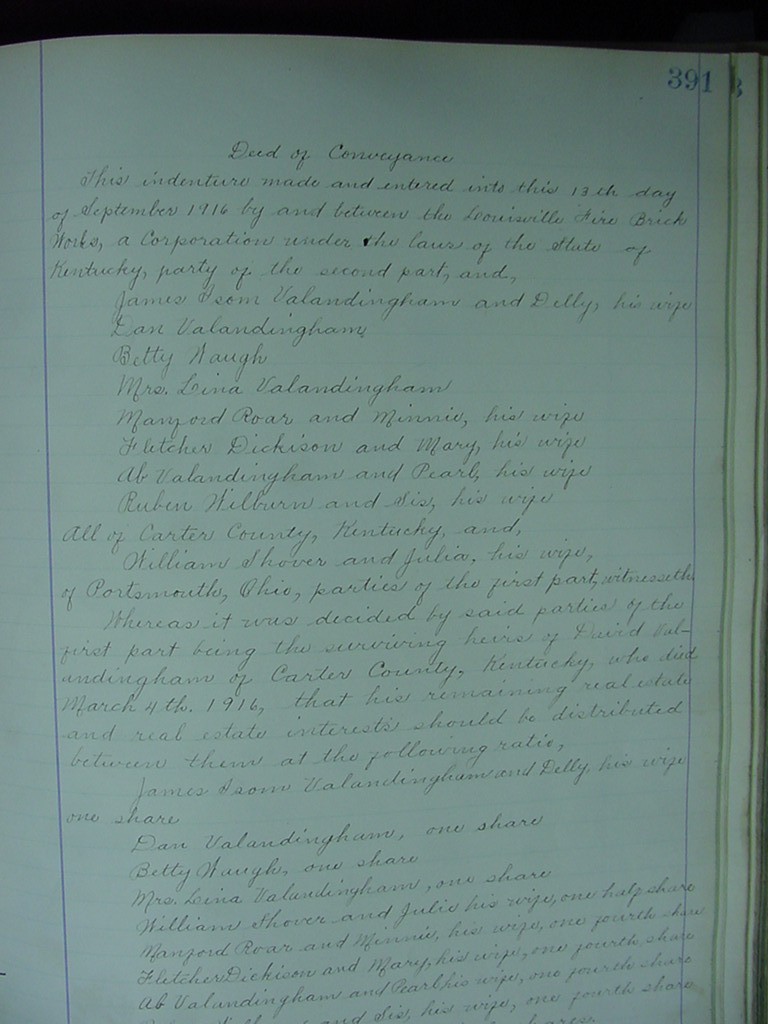 391
Deed of Conveyance
This indenture made and entered into this 13th day
of September 1916 by and between the Louisville Fire Brick
Works, a Corporation under the laws of the State of
Kentucky, party of the second part, and,
James Isom Valandingham and Delly, his wife
Dan Valandingham
Betty Waugh
Mrs. Lina Valandingham
Manford Roar and Minnie, his wife
Fletcher Dickison and Mary, his wife
Ab Valandingham and Pearl, his wife
Ruben Wilburn and Sis, his wife
All of Carter County, Kentucky, and,
William Shover and Julia, his wife,
of Portsmouth, Ohio, parties of the first part, witnesseth
Whereas it was decided by said parties of the
first part being the surviving heirs of David Val-
andingham of Carter County, Kentucky, who died
March 4th. 1916, that his remaining real estate
and real estate interests should be distributed
between them at the following ratio,
James Isom Valandingham and Delly, his wife
one share
Dan Valandingham, one share
Betty Waugh, one share
Mrs. Lina Valandingham, one share
William Shover and Julia his wife, one half share
Manford Roar and Minnie, his wife, one fourth share
Fletcher Dickison and Mary, his wife, one fourth share
Ab Valandingham and Pearl his wife, one fourth share
and Sis, his wife, one fourth share
shares